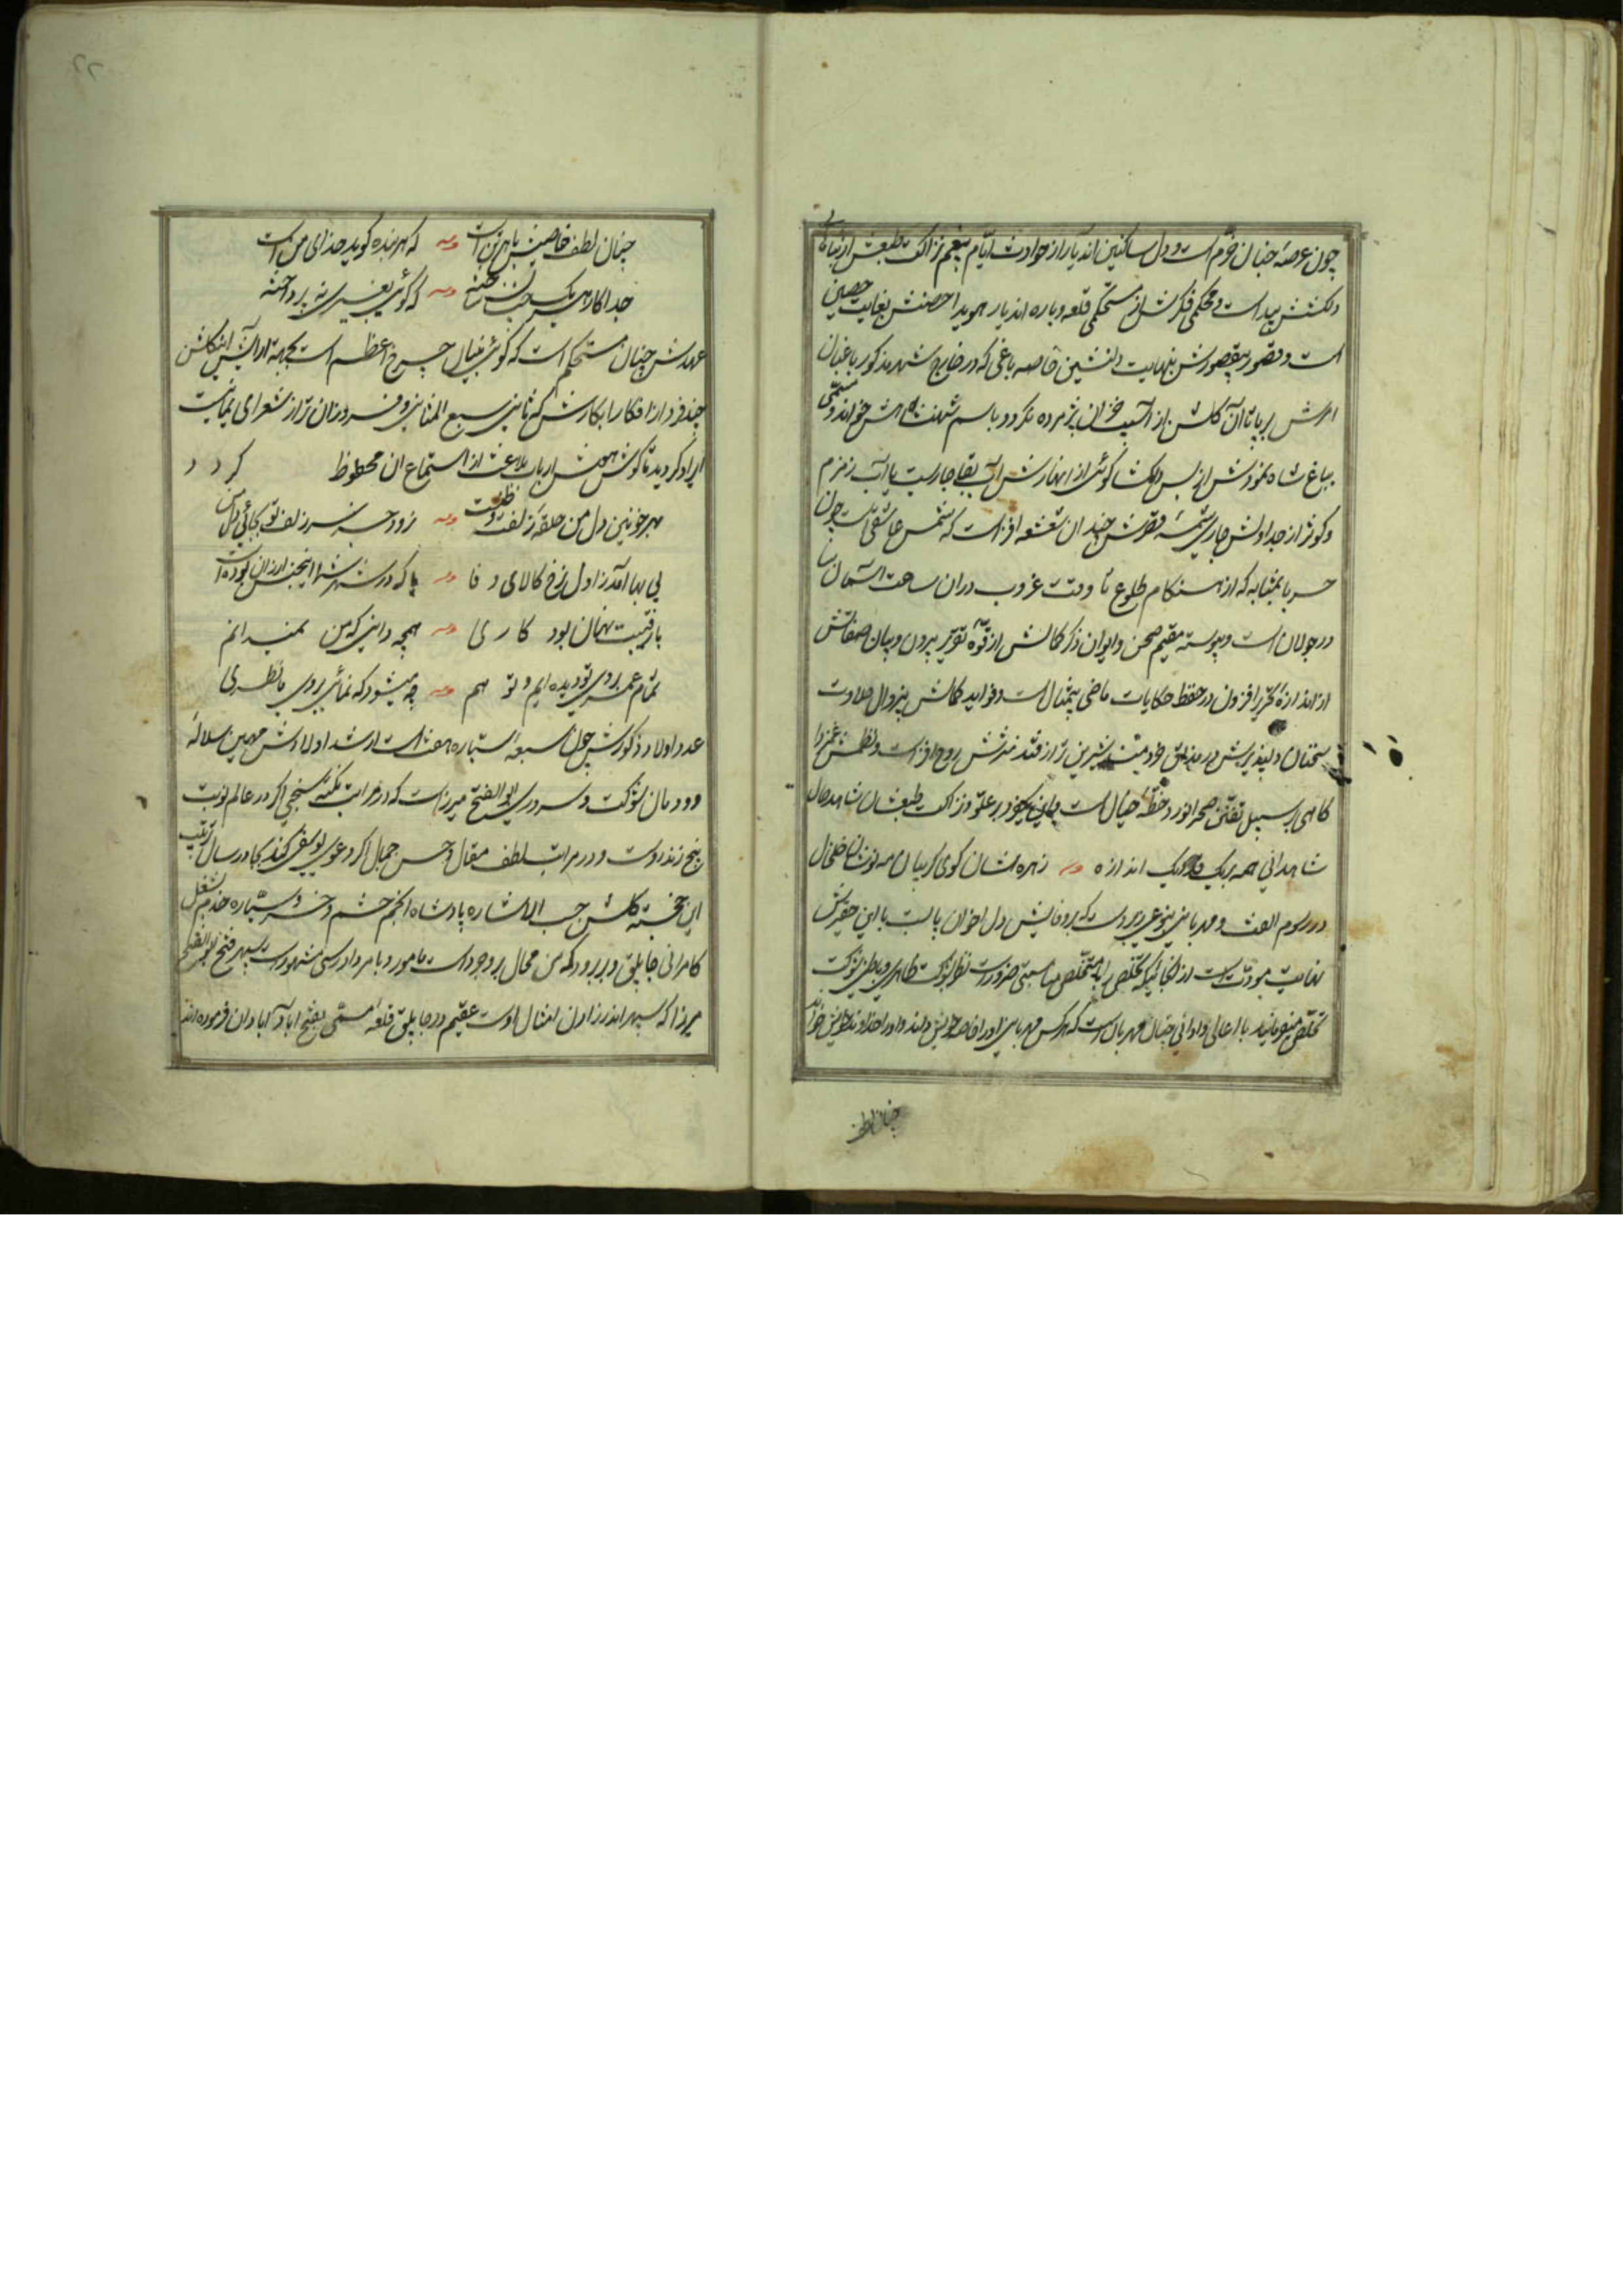 چون عرصهٔ جنان خرّم است و دل ساکنین اندیار از حوادث ایّام بیغم نزاکت طبعش از بناهای
دلکشش پیداست و محکمی فکرش از مستحکمی قلعه و باره اندیار هویدا حصنش بغایت حصین
است و قصور بیقصورش بنهایت دلنشین خاصه باغی که در خارج شهر مذکور باغبان
امرش برپا تا آن گلشن از آسیب خزان پژمرده نگردد باسم شهنشاهش خواند و مسمّی
بباغ شاه نمود از بس دلکشا گوئی از انهارش آب بقا جاریست یا آب زمزم
و کوثر از جداولش جاری شمسهٔ قصرش چندان شعشعه افزاست که شمس عاشقی است چون
حربا بمثابه که از هنگام طلوع تا وقت غروب دران ساحت آسمان سا
در جولان است و پیوسته مقیم صحن و ایوان ذکر کمالش از قوّهٔ تقریر بیرون و بیان صفاتش
از اندازهٔ تحریر افزون در حفظ حکایات ماضی بیمثال است و فواید کمالش بیزوال حلاوت
سخنان دلپذیرش در مذاق خردمند شیرین تر از قند نثرش روح افزاست و نظمش غمزدا
گاهی بر سبیل تفنّن صحرانورد خطّهٔ خیال است و علوّ و نزاکت طبعشان شاهد حال
شاهدانی همه بیک اندازه زهره شان گوی گریبان مه نوشان خلخال
در رسوم الفت و مهربانی بنوعی که بروفایش دل اخوان با این حقیرش
نهایت مودّت است از آنجائیکه تخلّص را با متخلّص مناسبتی ضرور است نظر بشوکت ظاهری و باطنی شوکت
تخلّص میفرمایند با اعالی و ادانی چنان مهربان است که هر کس مهربانی او را خاصه خویش داند و او را خداوند خویش خواند
چنان لطف
چنان لطف خاصیش با هر تن است که هر بنده گوید خدای من است
جدا کار هر یک که گوئی بغیری نپرداخته
عهدش چنان مستحکم است که گوئی بنیان چرخ اعظم است بجهة آرایش اینگلشن
چند فرد از افکار ابکارش که ثانی سبع المثانی و فروزان تر از شعرای یمانیست
ایراد گردید تا گوش هوش ارباب بلاغت از استماع ان محظوظ گردد
بهر خونین دل من حلقه زلفت
بی بها آمد ز اول نرخ کالای وفا یا که در شهر شما اینجنس ارزان بوده است
با رقیبت نهان بود کاری همچه دانی که من نمیدانم
تمام عمر بروی تو دیده ایم و تو هم چه میشود که نمائی بروی ما نظری
عدد اولاد ذکورش چون سبعهٔ سیّاره هفت است ارشد اولادش مهین سلالهٔ
دودمان شوکت و سروری ابو الفتح میرزاست که در مراتب نکته سنجی اگر در عالم نوبت
پنج زند رواست و در مراتب لطف مقال و حسن جمال اگر دعوی یوسفی کند بجا در سال ترتیب
این خجسته گلشن حسب الاشاره پادشاه انجم حشم و خسرو سیّاره خدم بشغل
کامرانی جاپلق و بربرود که من محال بروجرد است مامور و بامر دادرسی مشهور است سپهر فتح ابو الفتح
میرزا که سپهر اندر زادن امثال اوست عقیم در جاپلق قلعهٔ مسمّی بفتح اباد آبادان فرموده اند